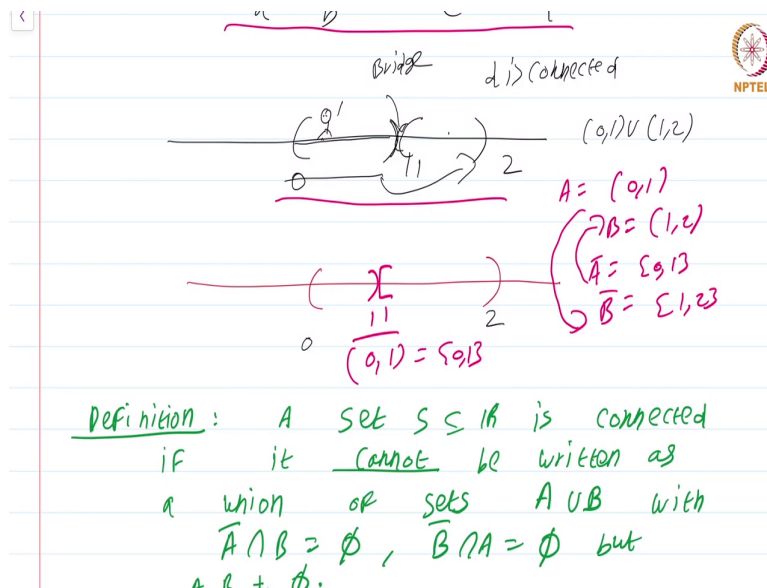 Bridge disconnected
NPTEL
(0,1) ∪ (1,2)
0 1 2
A = (0,1)
B = (1,2)
Ā = [0,1]
B̄ = [1,2]
0 1 2
(0,1) = [0,1]
Definition: A set S ⊆ IR is connected
if it cannot be written as
a union of sets A ∪ B with
Ā ∩ B = ∅, B̄ ∩ A = ∅ but
A, B ≠ ∅.